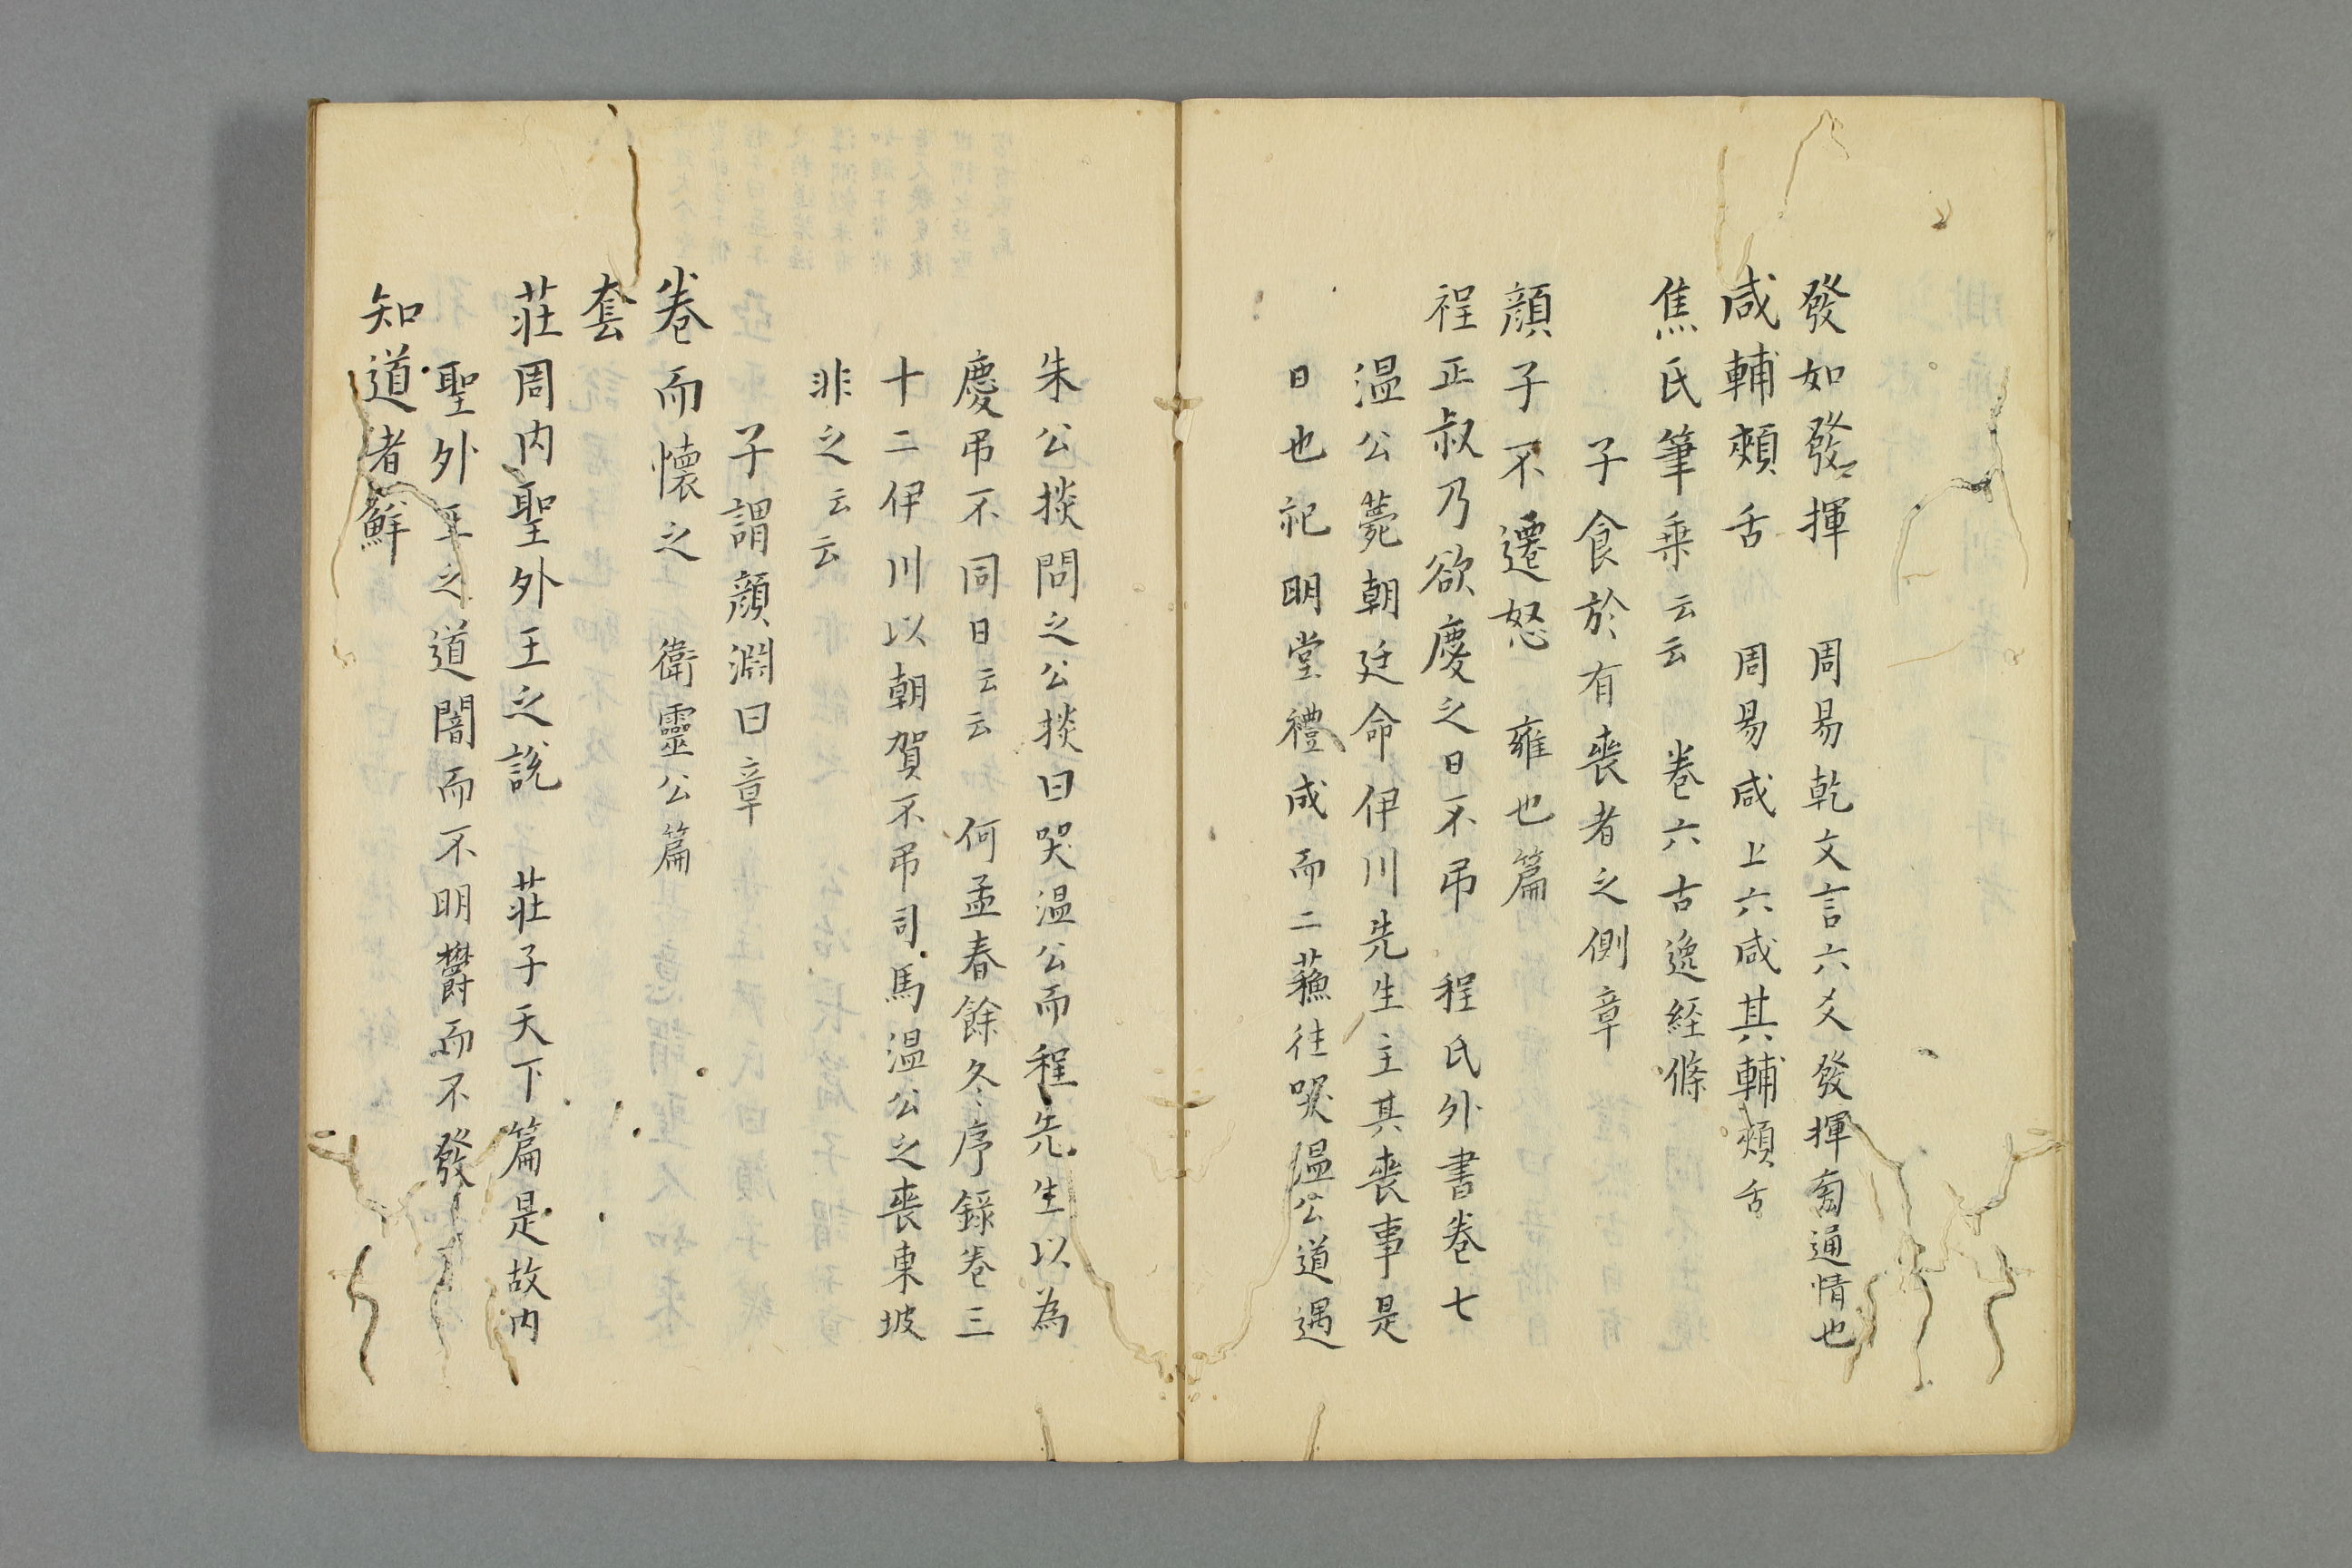 發如發揮　周易乾文言六爻發揮旁通情也
咸輔頰舌　周易咸上六咸其輔頰舌
焦氏筆乗云云　卷六古逸経條
子食於有喪者之側章
顔子不遷怒　雍也篇
程正叔乃欲慶之日不吊　程氏外書卷七
温公薨朝廷命伊川先生主其喪事是
日也祀明堂禮成而二蘓往哭温公道遇
朱公掞問之公掞曰哭温公而程先生以為
慶吊不同日云云　何孟春餘冬序録卷三
十二伊川以朝賀不吊司馬温公之喪東坡
非之云云
子謂顔淵曰章
卷而懐之　衛靈公篇
套
莊周内聖外王之説　莊子天下篇是故内
聖外王之道闇而不明欝而不發
知道者鮮